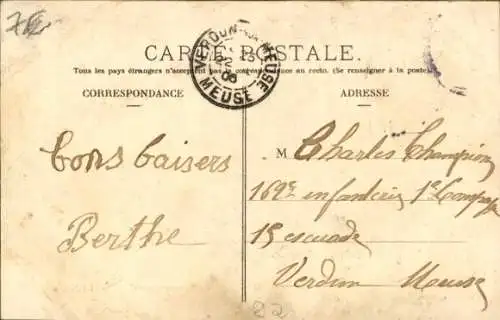 CARTE POSTALE.
Tous les pays étrangers n'acceptent pas la correspondance au recto. (Se renseigner à la poste).
VERDUN-S-MEUSE
MEUSE
CORRESPONDANCE
ADRESSE
Bons baisers
Berthe
M Charles Champion
169e infanterie 1e Compag
15 escuade
Verdun Meuse
22